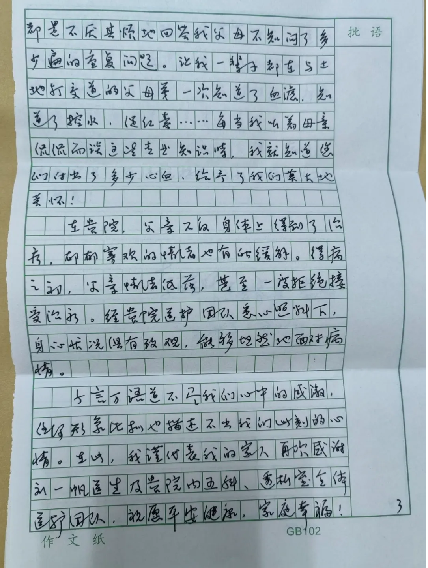 批语
却是不厌其烦地回答我父母不知问了多
少遍的重复问题。让我一辈子都在与土
地打交道的父母第一次知道了血滤，知
道了控水，促红素……每当我听着母亲
侃侃而谈这些专业知识时，我就知道您
们付出了多少心血，给予了我们莫大地
关怀！
在贵院，父亲不仅身体上得到了治
疗，郁郁寡欢的情绪也有所缓解。得病
之初，父亲情绪低落，甚至一度拒绝接
受治疗。经贵院医护团队悉心照料下，
身心状况俱有改观，能够坦然地面对病
情。
千言万语道不尽我们心中的感激，
任何形象比拟也描述不出我们此刻的心
情。在此，我谨代表我的家人再次感谢
刘一帆医生及贵院内五科、透析室全体
医护团队，祝愿平安健康，家庭幸福！
3
作文纸 GB102